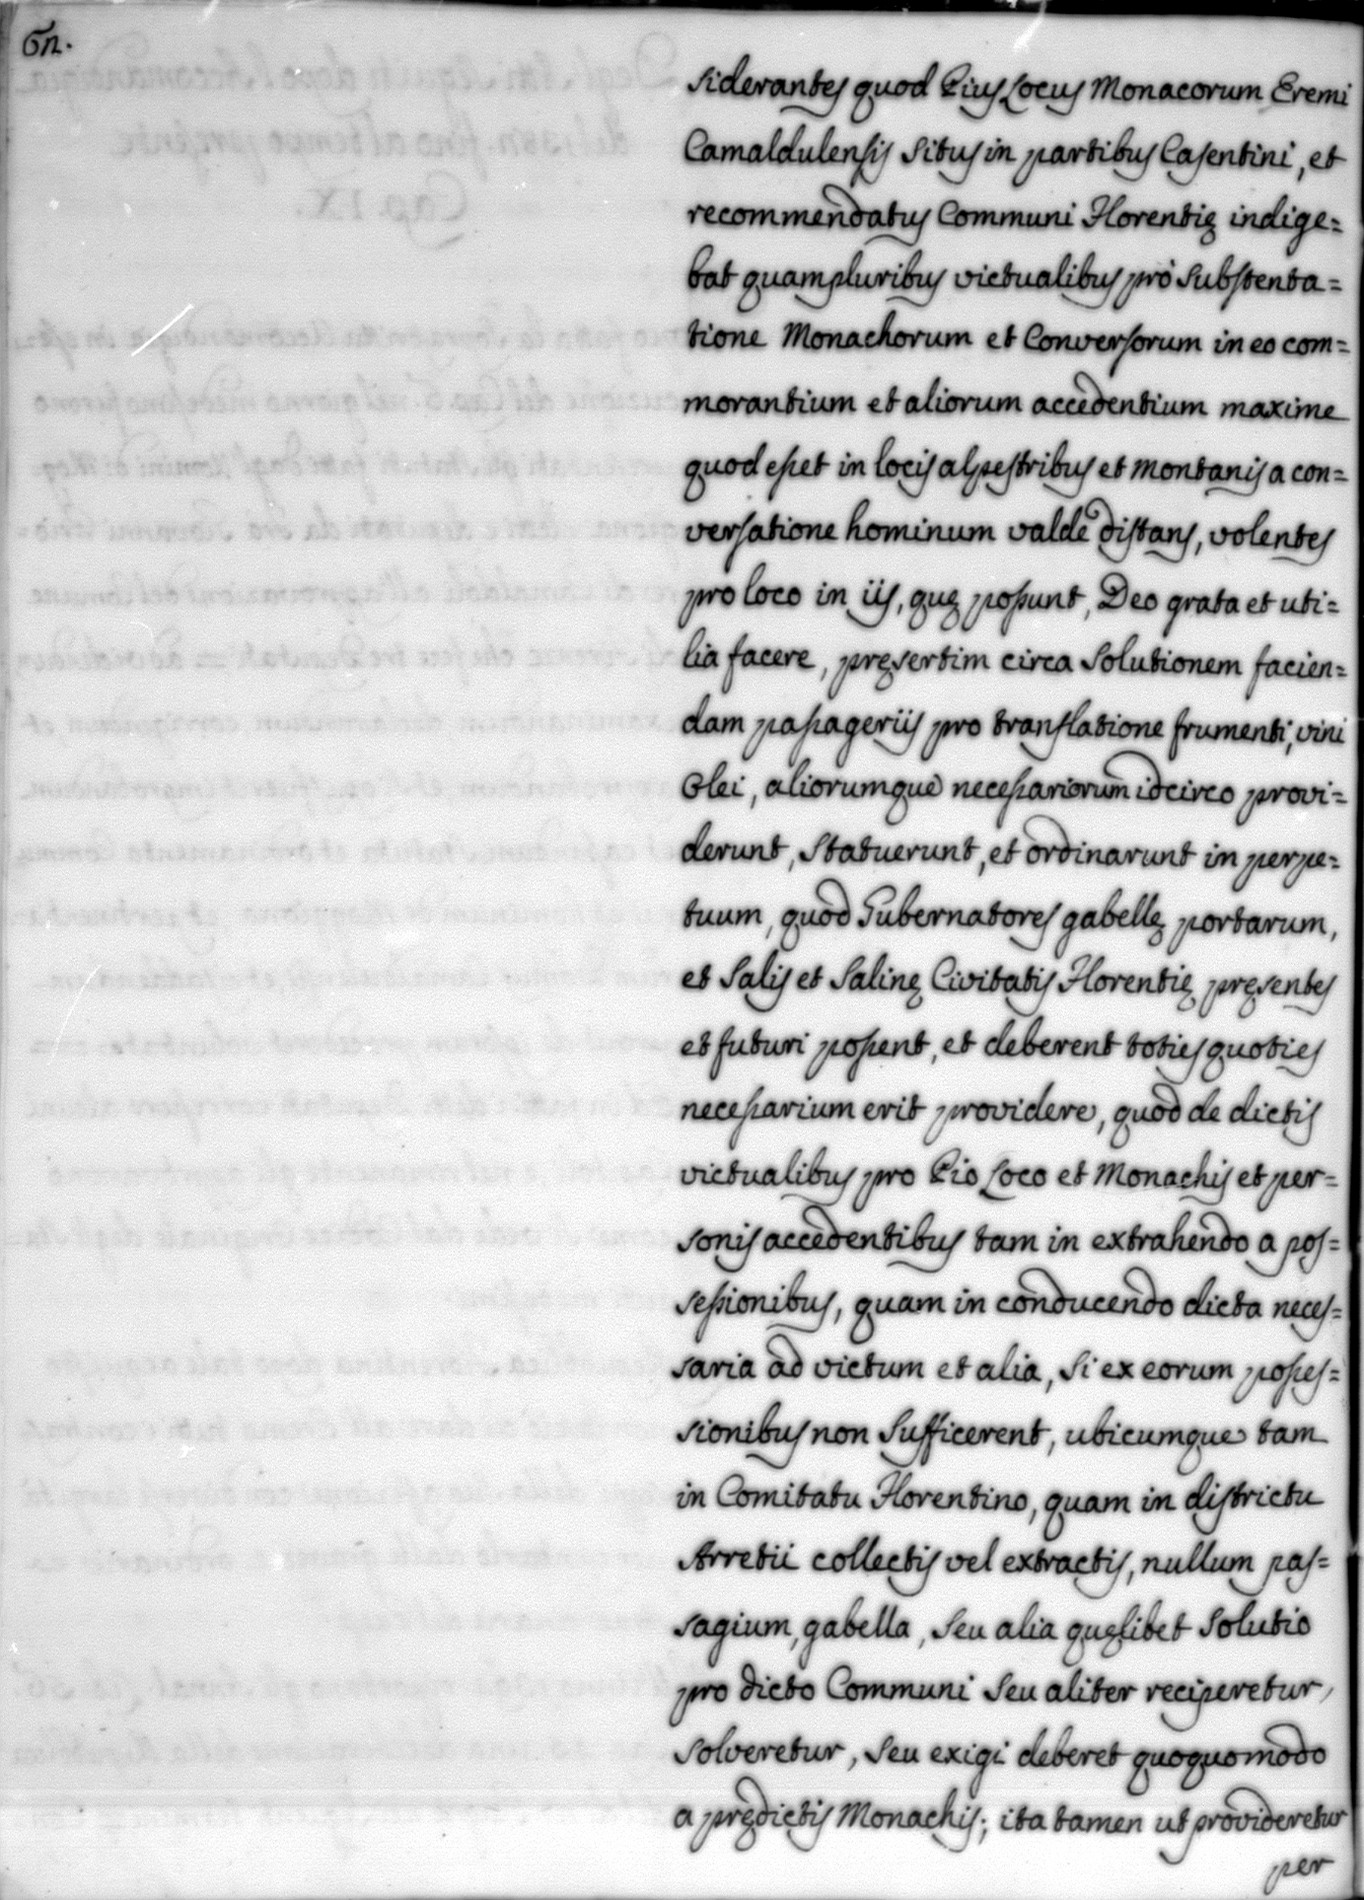 64.
siderantes quod Pius Locus Monacorum Eremi
Camaldulensis situs in partibus Casentini, et
recommendatus Communi Florentię indige=
bat quampluribus victualibus prò substenta=
tione Monachorum et Conversorum in eo com=
morantium et aliorum accedentium maxime
quod esset in locis alpestribus et montanis a con=
versatione hominum valdè distans, volentes
pro loco in iis, quę possunt, Deo grata et uti=
lia facere, pręsertim circa solutionem facien=
dam passageriis pro translatione frumenti, vini
Olei, aliorumque necessariorum idcirco provi=
derunt, statuerunt, et ordinarunt in perpe=
tuum, quod Gubernatores gabellę portarum,
et Salis et Salinę Civitatis Florentię pręsentes
et futuri possent, et deberent toties quoties
necessarium erit providere, quod de dictis
victualibus pro Pio Loco et Monachis et per=
sonis accedentibus tam in extrahendo a pos=
sessionibus, quam in conducendo dicta neces=
saria ad victum et alia, si ex eorum posses=
sionibus non sufficerent, ubicumque tam
in Comitatu Florentino, quam in districtu
Arretii collectis vel extractis, nullum pas=
sagium, gabella, seu alia quęlibet solutio
pro dicto Communi seu aliter reciperetur,
solveretur, seu exigi deberet quoquomodo
a prędictis Monachis; ita tamen ut provideretur
per